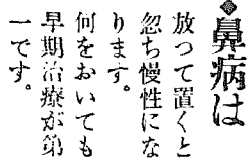 ◆鼻病は
放つて置くと
忽ち慢性にな
ります。
何をおいても
早期治療が第
一です。